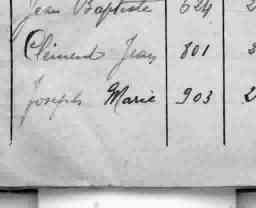 Jean Baptiste 624 2
Clément Jean 801 3
Joseph Marie 903 2